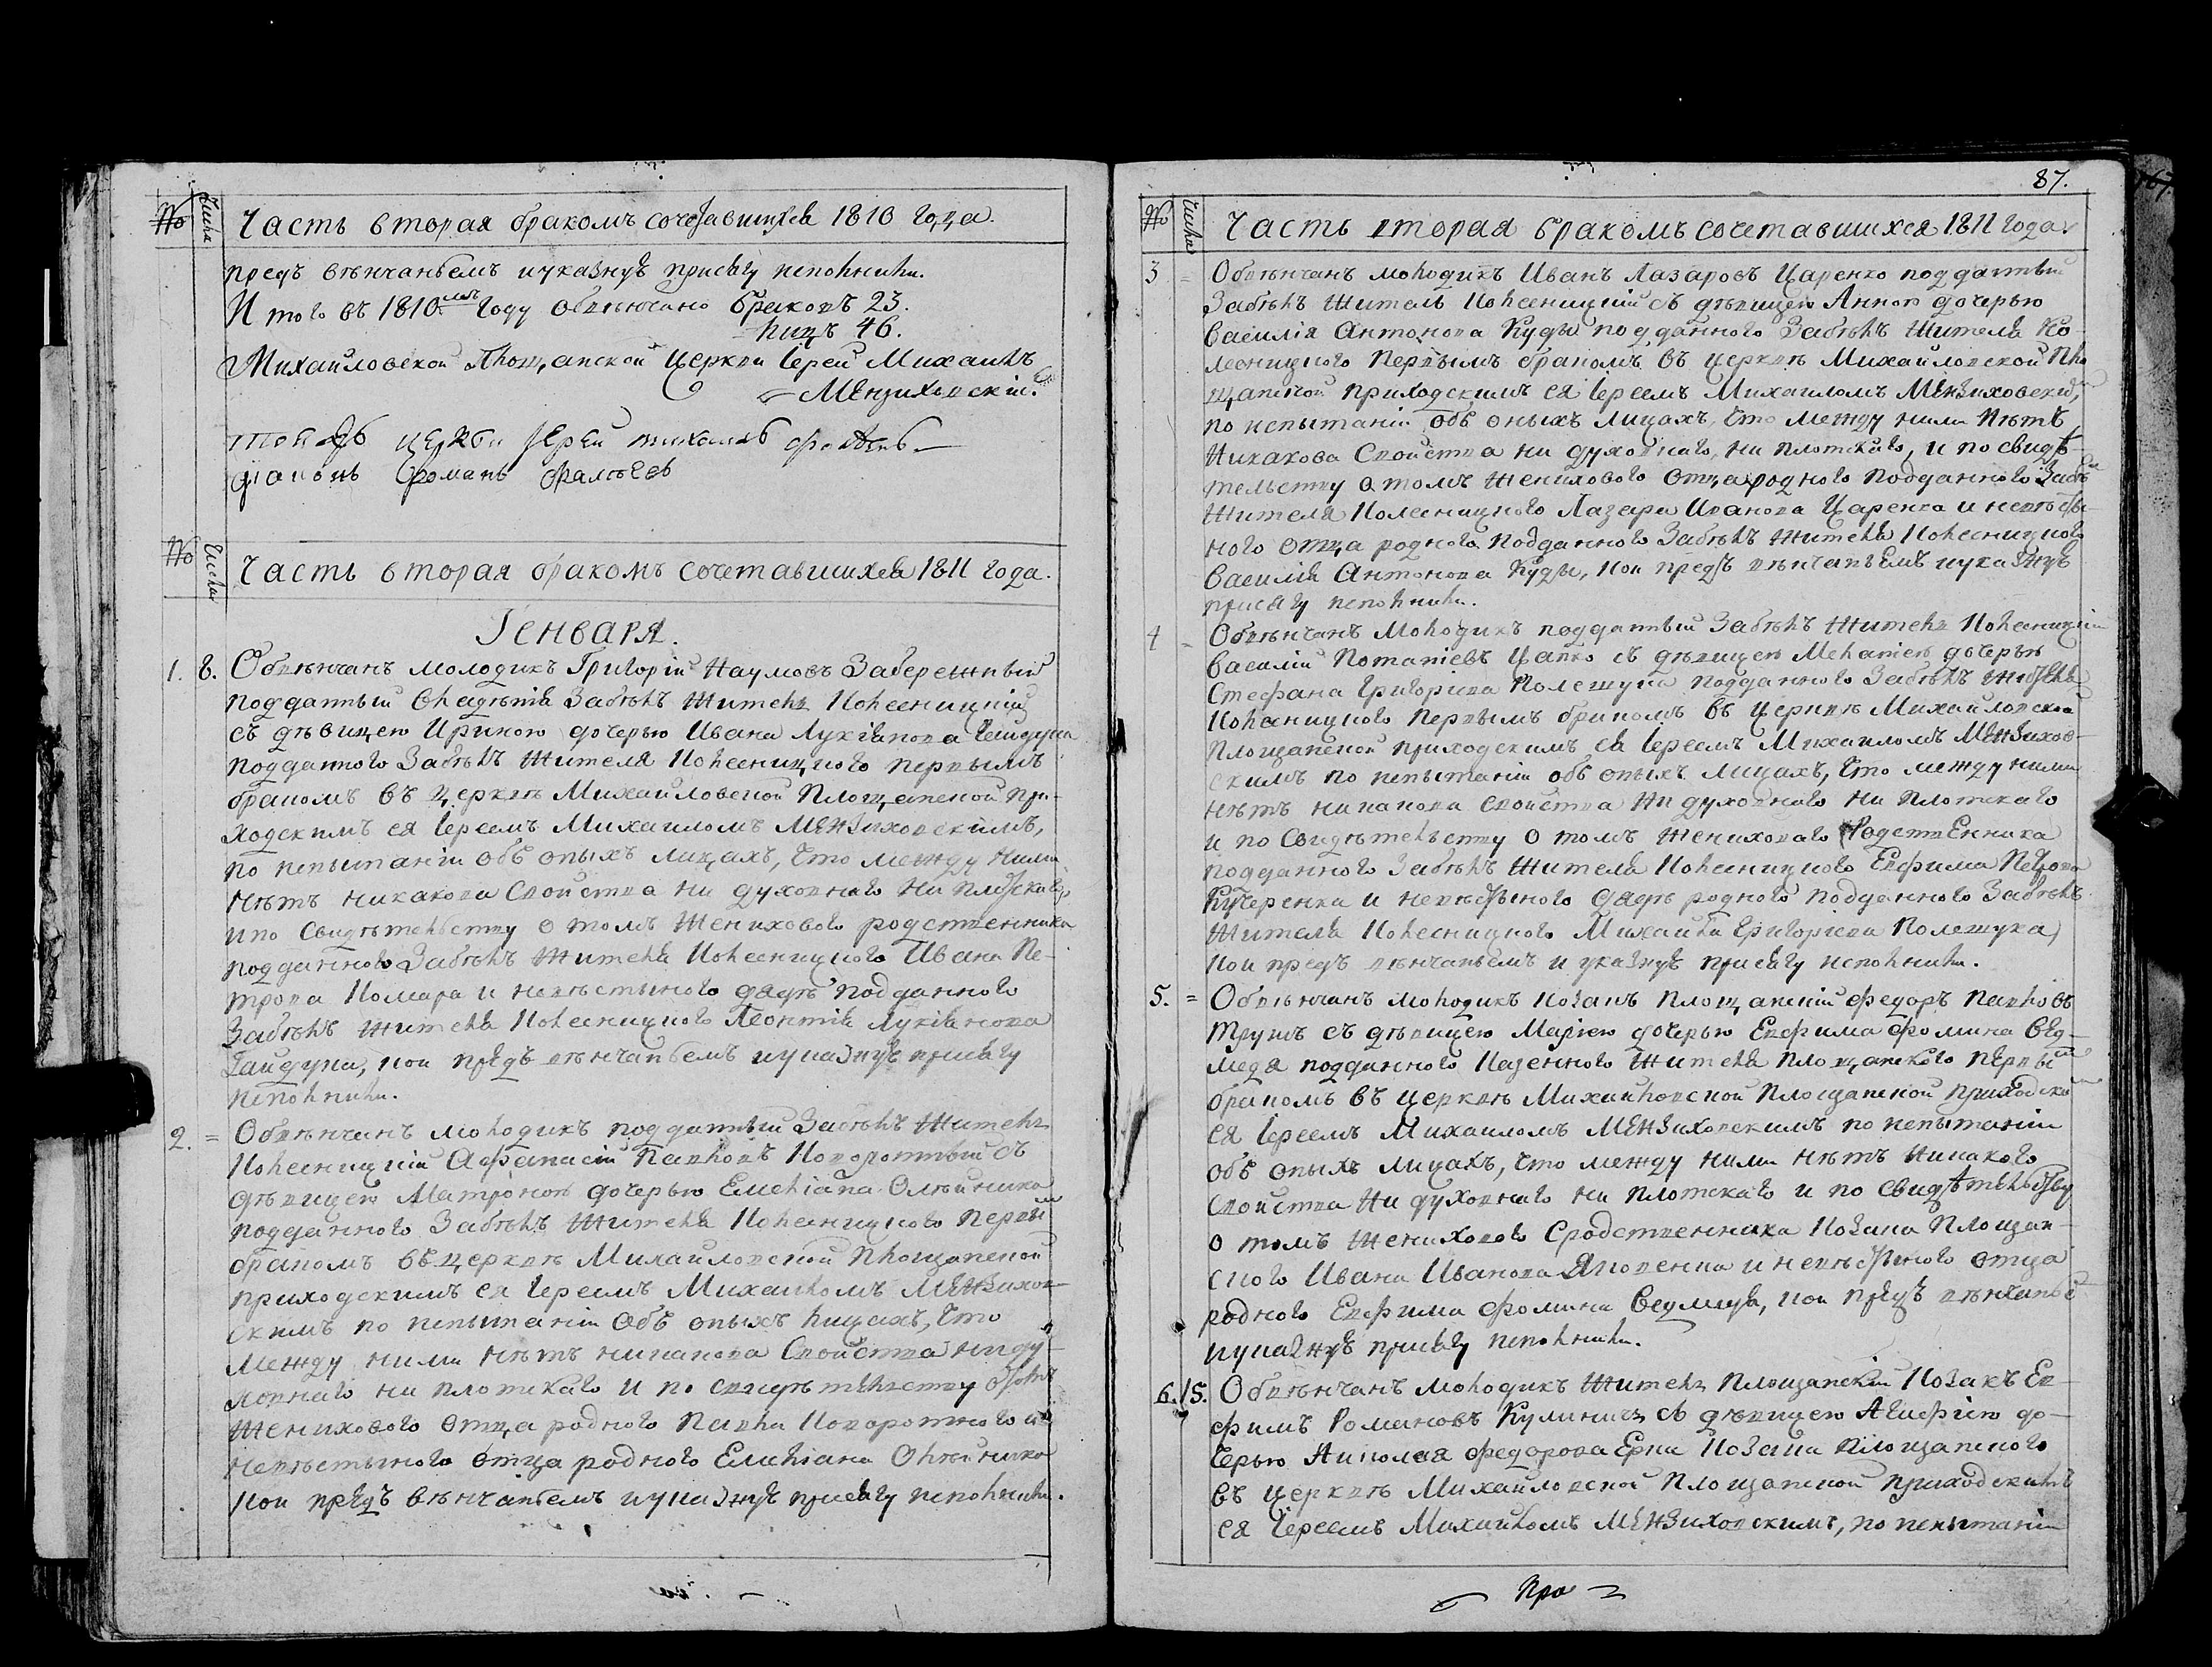 № Числа Часть вторая бракомъ сочетавшихся 1810 года.
предъ вѣнчаньемъ и указную присягу исполнили.
Итого въ 1810мъ году обвѣнчано браковъ 23.
лицъ 46.
Михайловской Площанской церкви Іерей Михаилъ
Мензиховскій.
тоей церкви Іерей
діаконъ Романъ
№ Числа Часть вторая бракомъ сочетавшихся 1811 года.
Генваря.
1. 8. Обвѣнчанъ молодикъ Григорій Наумовъ Забережный
подданный Владѣнія Забѣлъ житель Колесницкій
съ дѣвицею Ириною дочерью Ивана Лукіянова Гайдука
подданного Забѣлъ жителя Колесницкого первымъ
бракомъ въ церквѣ Михайловской Площанской при-
ходскимъ ея Іереемъ Михаиломъ Мензиховскимъ,
по испытаніи объ оныхъ лицахъ, что между ними
нѣтъ никакова свойства ни духовнаго ни плотскаго,
и по свидѣтельству о томъ женихового родственника
подданного Забѣлъ жителя Колесницкого Ивана Пе-
трова Комара и невѣстыного дядѣ подданного
Забѣлъ жителя Колесницкого Леонтія Лукіянова
Гайдука, кои предъ вѣнчаньемъ и указную присягу
исполнили.
2. = Обвѣнчанъ молодикъ подданный Забѣлъ житель
Колесницкій Афанасій Павловъ Коворотный съ
дѣвицею Матроною дочерью Емеліана Олѣйника
подданного Забѣлъ жителя Колесницкого первымъ
бракомъ въ церквѣ Михайловской Площанской
приходскимъ ея Іереемъ Михаиломъ Мензихов-
скимъ по испытаніи объ оныхъ лицахъ, что
между ними нѣтъ никакова свойства ни ду-
ховнаго ни плотскаго и по свидѣтельству о томъ
женихового отца родного Павла Коворотного и
невѣстыного отца родного Емеліана Олѣйника
кои предъ вѣнчаньемъ и указную присягу исполнили.
87.
№ Числа Часть вторая бракомъ сочетавшихся 1811 года
3 = Обвѣнчанъ молодикъ Иванъ Лазаровъ Царенко подданный
Забѣлъ житель Колесницкій съ дѣвицею Анною дочерью
Василія Антонова Куды подданного Забѣлъ жителя Ко-
лесницкого первымъ бракомъ въ церквѣ Михайловской Пло
щанской приходскимъ ея Іереемъ Михаиломъ Мензиховским,
по испытаніи объ оныхъ лицахъ, что между ними нѣтъ
никакова свойства ни духовнаго, ни плотскаго, и по свидѣ-
тельству о томъ женихового отца родного подданного Забѣлъ
жителя Колесницкого Лазаря Иванова Царенка и невѣсты-
ного отца родного подданного Забѣлъ жителя Колесницкого
Василія Антонова Куды, кои предъ вѣнчаньемъ и указную
присягу исполнили.
4 = Обвѣнчанъ молодикъ подданный Забѣлъ житель Колесницкій
Василій Потапіевъ Цапко съ дѣвицею Меланіею дочерью
Стефана Григоріева Полещука подданного Забѣлъ жителя
Колесницкого первымъ бракомъ въ церквѣ Михайловской
Площанской приходскимъ ея Іереемъ Михаиломъ Мензихов-
скимъ по испытаніи объ оныхъ лицахъ, что между ними
нѣтъ никакова свойства ни духовного ни плотскаго
и по свидѣтельству о томъ женихового Родственника
подданного Забѣлъ жителя Колесницкого Евфима Петрова
Кучеренка и невѣстыного дядѣ родного подданного Забѣлъ
жителя Колесницкого Михайла Григоріева Полещука,
кои предъ вѣнчаньемъ и указную присягу исполнили.
5. = Обвѣнчанъ молодикъ козакъ Площанскій Федоръ Павловъ
Трушъ съ дѣвицею Маріею дочерью Евфима Фомина Вед-
медя подданного казенного жителя Площанского первым
бракомъ въ церквѣ Михайловской Площанской приходским
ея Іереемъ Михаиломъ Мензиховскимъ по испытаніи
объ оныхъ лицахъ, что между ними нѣтъ никакого
свойства ни духовнаго ни плотскаго и по свидѣтельству
о томъ женихового сродственника козака Площан-
ского Ивана Иванова Яковенка и невѣстыного отца
родного Евфима Фомина Ведмедя, кои предъ вѣнчаньем
и указную присягу исполнили.
6. 15. Обвѣнчанъ молодикъ житель Площанскій козакъ Ев-
фимъ Романовъ Кулиничъ съ дѣвицею Агафією до-
черью Николая Федорова Ерки козака Площанского
въ церквѣ Михайловской Площанской приходскимъ
ея Іереемъ Михаиломъ Мензиховскимъ, по испытаніи